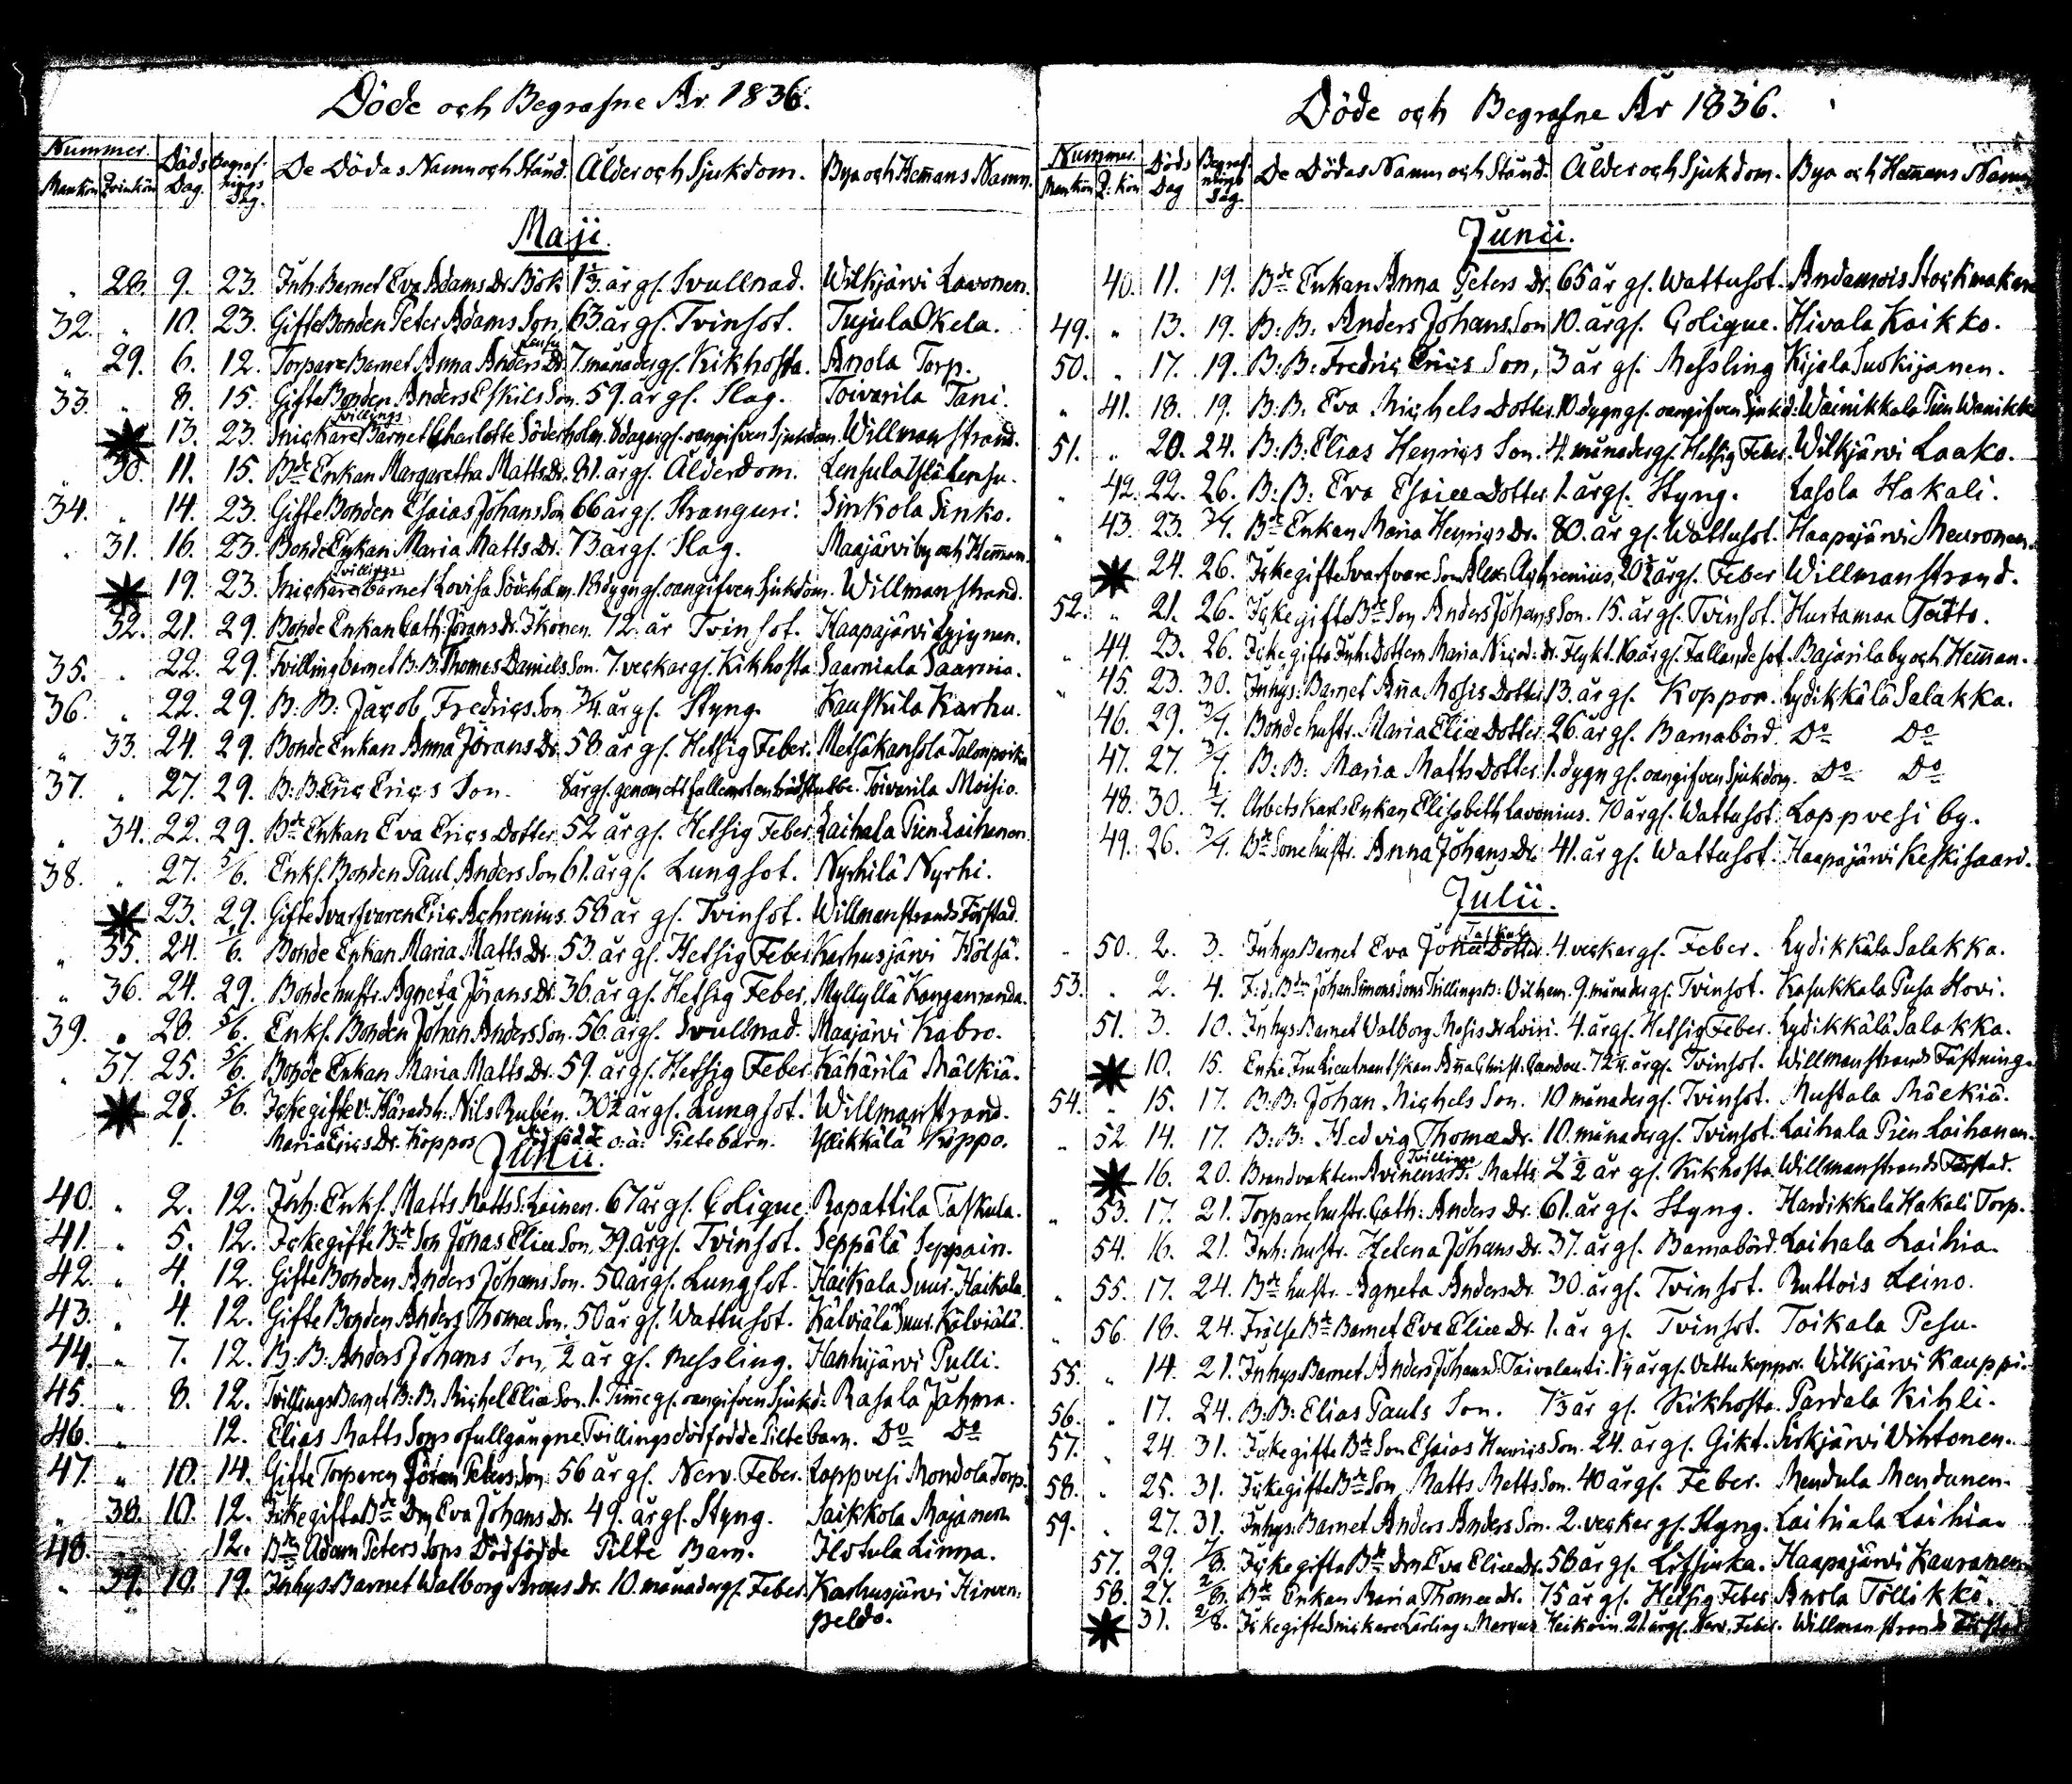 Döde och Begrafne År 1836.
Nummer. Döds Dag. Begrafnings Dag. De Dödas Namn och Stånd. Ålder och Sjukdom. Bya och Hem̄ans Namn.
Mankön Qvinkön
Maji.
" 28. 9. 23. Inh. Barnet Eva Adams Dr. Bök 1 1/3 år gl. Svullnad. Wilkjärvi Lavonen.
32. " 10. 23. Gifte Bonden Peter Adams Son, 63 år gl. Tvinsot. Tujula Skela.
" 29. 6. 12. Torpare Barnet Anna Anders Dr. Lensu 7. månader gl. Kikhosta. Anola Torp.
33. " 8. 15. Gifte Bonden Anders Eskils Son. 59. år gl. Slag. Toivarila Tani.
13. 23. Snickare Tvillings Barnet Charlotte Söderholm. 8 dagar gl. oangifven Sjukdom. Willmanstrand.
" 30. 11. 15. Bde Enkan Margaretha Matts Dr. 81. år gl. Ålderdom. Lensula Ylä Lensu.
34. " 14. 23. Gifte Bonden Esaias Johans Son 66 år gl. Stranguri. Sinkola Sinko.
" 31. 16. 23. Bonde Enkan Maria Matts Dr. 73 år gl. Slag. Maajärvi by och Hem̄an.
19. 23. Snickare Tvillings barnet Lovisa Söderholm. 13 dygn gl. oangifven Sjukdom. Willmanstrand.
32. 21. 29. Bonde Enkan Cath: Jörans Dr. Ikonen. 72. år Tvinsot. Haapajärvi Lyjynen.
35. " 22. 29. Tvilling barnet B: B. Thomas Daniels Son. 7. veckar gl. Kikhosta Saarniala Saarnia.
36. " 22. 29. B: B: Jacob Fredrics Son 3/4 år gl. Styng. Kauskila Karhu.
" 33. 24. 29. Bonde Enkan Anna Jörans Dr. 58 år gl. Hetsig Feber. Metsäkansola Talonpoika
37. " 27. 29. B: B Eric Erics Son. 8 år gl. genom ett fall emot en trädstubbe. Toivarila Moisio.
" 34. 22. 29. Bde Enkan Eva Erics Dotter 52 år gl. Hetsig Feber. Laihala Pien Laihanen
38. " 27. 5/6. Enkl. Bonden Paul Anders Son 61. år gl. Lungsot. Nyrhilä Nyrhi.
23. 29. Gifte Svarfvaren Eric Achrenius. 58 år gl. Tvinsot. Willmanstrands Förstad.
" 35. 24. 1/6. Bonde Enkan Maria Matts Dr. 53. år gl. Hetsig Feber Karhusjärvi Hölsä.
" 36. 24. 29. Bonde hustr. Agneta Jörans Dr. 36. år gl. Hetsig Feber. Myllyllä Kangamranda.
39. " 28. 5/6. Enkl. Bonden Johan Anders Son. 56. år gl. Svullnad. Maajärvi Kabro.
" 37. 25. 5/6. Bonde Enkan Maria Matts Dr. 59. år gl. Hetsig Feber. Kähärilä Mälkiä.
28. 5/6. Icke gifte V: Häradsh: Nils Rubén. 30 1/2 år gl. Lungsot. Willmanstrand.
1. Maria Erics Dr. Koppos dödfödde o: ä: Piltebarn. Yläkkälä Koppo.
Junii.
40. " 2. 12. Inh: Enkl. Matts Matts S. Loinen. 67 år gl. Colique Rapattila Taskula.
41. " 5. 12. Icke gifte Bde Son Jonas Eliæ Son. 39. år gl. Tvinsot. Seppälä Seppäin.
42. " 4. 12. Gifte Bonden Anders Johans Son. 50 år gl. Lungsot. Haikala Suur-Haikala.
43. " 4. 12. Gifte Bonden Anders Thomæ Son. 50 år gl. Wattusot. Kälviälä Suur-Kälviälä.
44. " 7. 12. B: B: Anders Johans Son, 1/2 år gl. Messling. Hanhijärvi Pulli.
45. " 8. 12. Tvillings Barnet B: B. Michel Eliæ Son. 1. Tim̄e gl. oangifven Sjukd: Rasala Jahma.
46. " 12. Elias Matts Sons ofullgångne Tvillings dödfödde Piltebarn. Do Do
47. " 10. 14. Gifte Torparen Johan Peters Son 56 år gl. Nerv. Feber. Lappvesi Mondola Torp.
" 38. 10. 12. Icke gifta Bde Dm Eva Johans Dr. 49. år gl. Styng. Saikkola Majanen.
48. 12. Bdn Adam Peters Sons Dödfödde Pilte Barn. Ilotula Linna.
" 39. 10. 19. Inhys Barnet Walborg Arons Dr. 10. månader gl. Feber. Karhusjärvi Hirven:
peldo.
Döde och Begrafne År 1836.
Nummer. Döds Dag Begrafnings Dag De Dödas Namn och Stånd. Ålder och Sjukdom. Bya och Hem̄ans Namn
Mankön Q. kön
Junii.
40. 11. 19. Bde Enkan Anna Peters Dr. 65 år gl. Wattusot. Andamois Stockmakare
49. " 13. 19. B: B: Anders Johans Son 10. år gl. Colique. Hivala Kaikko.
50. " 17. 19. B: B: Fredric Erics Son, 3 år gl. Messling Kijala Suokijanen.
" 41. 18. 19. B: B: Eva Michels Dotter. 10. dygn gl. oangifven Sjukd: Wainikkala Pien Wanikka
51. " 20. 24. B: B: Elias Henrics Son. 4. månader gl. Hetsig Feber. Wilkjärvi Laako.
" 42. 22. 26. B: B: Eva Esaiæ Dotter 1. år gl. Styng. Lasola Hakali.
" 43. 23. 3/7. Bde Enkan Maria Henrics Dr. 80. år gl. Wattusot. Haapajärvi Meuronen.
24. 26. Icke gifte Svarfvare Son Alex: Achrenius, 20 1/2 år gl. Feber Willmanstrand.
52. " 21. 26. Icke gifte Bde Son Anders Johans Son. 15. år gl. Tvinsot. Hurtamaa Tatto.
" 44. 23. 26. Icke gifta Inh: Dottern Maria Nicod: Dr. Flykt. 16 år gl. Fallandesot. Bajarila by och Hem̄an.
" 45. 23. 30. Inhys: Barnet An̄a Mosis Dotter 13. år gl. Koppor. Lydikkälä Salakka.
46. 29. 3/7. Bonde hustr. Maria Eliæ Dotter 26. år gl. Barnabörd. Do Do
47. 27. 3/7. B: B: Maria Matts Dotter. 1. dygn gl. oangifven Sjukdom. Do Do
48. 30. 4/7. Arbets Karls Enkan Elisabeth Lavonius. 70 år gl. Wattusot. Lappvesi by.
49. 26. 3/7. Bde Sone hustr. Anna Johans Dr. 41. år gl. Wattusot. Haapajärvi Keskisaari.
Julii.
" 50. 2. 3. Inhys Barnet Eva Dotter. 4. veckar gl. Feber. Lydikkälä Salakka.
53. " 2. 4. F: d. Bdn Johan Simons Sons Trillings B: Wilhem. 9. månader gl. Tvinsot. Kasukkala Pusa Hovi.
51. 3. 10. Inhys Barnet Walborg Mosis Dr Loiri. 4. år gl. Hetsig Feber. Lydikkälä Salakka.
10. 15. Enke Fru Lieutnantskan An̄a Christ: Gandou. 72 1/4 år gl. Tvinsot. Willmanstrands Fästning.
54. " 15. 17. B: B: Johan Michels Son. 10 månader gl. Tvinsot. Mustola Mäckiä.
" 52 14. 17. B: B: Hedvig Thomæ Dr. 10. månader gl. Tvinsot. Laihala Pien Laihanen.
16. 20. Brandvakten Avinens Tvillings B. Matts 2 1/2 år gl. Kikhosta Willmanstrands Förstad.
" 53. 17. 21. Torpare hustr. Cath: Anders Dr. 61. år gl. Styng. Hardikkala Hakali Torp.
54. 16. 21. Inh: hustr. Helena Johans Dr. 37. år gl. Barnabörd. Laihala Laihia.
" 55. 17. 24. Bde hustr. Agneta Anders Dr. 30. år gl. Tvinsot. Ruttois Leino.
" 56. 18. 24. Frälse Bde Barnet Eva Eliæ Dr. 1. år gl. Tvinsot. Toikala Pesu.
55. " 14. 21. Inhys Barnet Anders Johans S. Taivalanti. 1 1/4 år gl. Vattu koppor. Wilkjärvi Kauppi.
56. " 17. 24. B: B: Elias Pauls Son. 7 1/2 år gl. Kikhosta. Pardala Kihli.
57. " 24. 31. Icke gifte Bde Son Esaias Henrics Son. 24. år gl. Gikt. Sirkjärvi Vihtonen.
58. " 25. 31. Icke gifte Bde Son Matts Matts Son. 40 år gl. Feber. Mendula Mendunen.
59. " 27. 31. Inhys: Barnet Anders Anders Son. 2. veckar gl. Styng. Laihiala Laihia.
57. 29. 7/8. Icke gifte Bde Dm Eva Eliæ Dr. 58 år gl. Letsjuka. Haapajärvi Kauranen
58. 27. 2/8. Bde Enkan Maria Thomæ Dr. 75 år gl. Hetsig Feber Anola Töllikkö.
31. 2/8. Icke gifte Snickare Lärling Heikoin. 21. år gl. Nerv. Feber. Willmanstrands Förstad